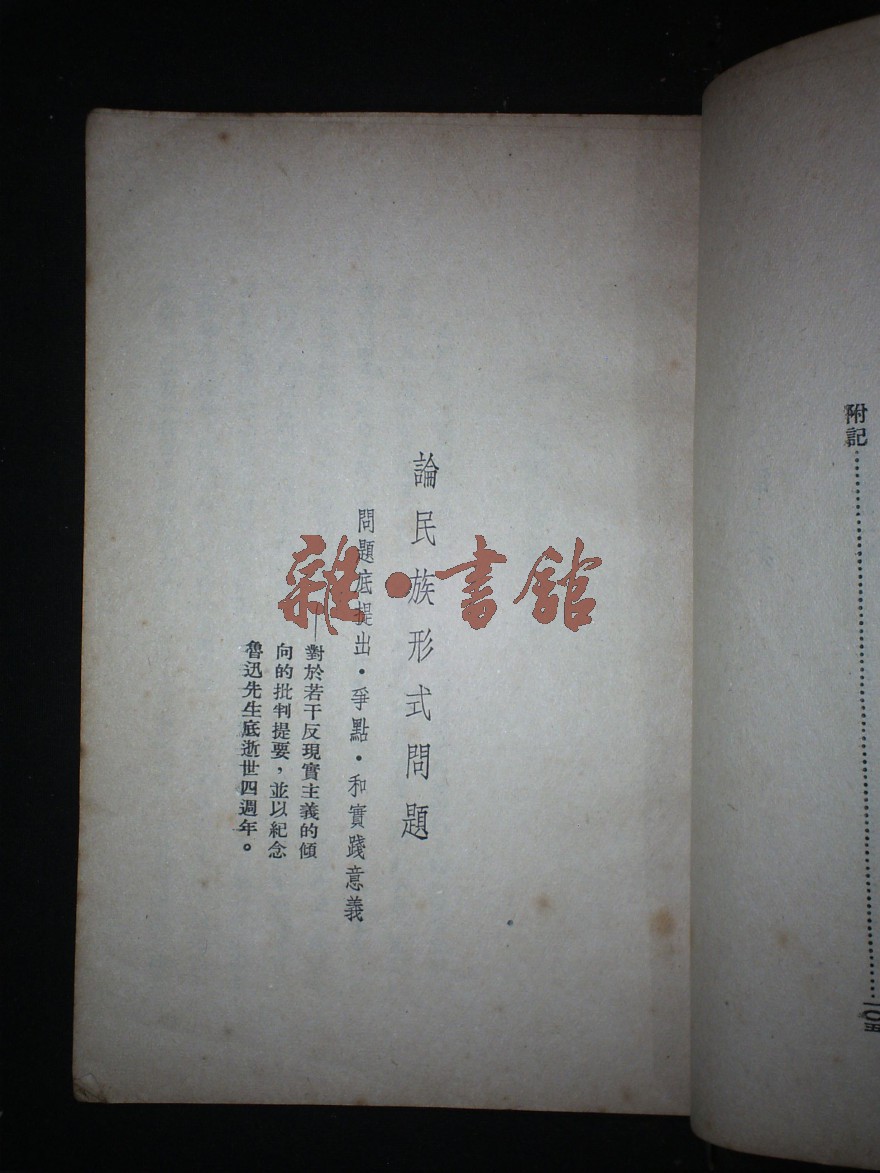 附記……………………一〇五
論民族形式問題
問題底提出·爭點·和實踐意義
——對於若干反現實主義的傾
向的批判提要，並以紀念
魯迅先生底逝世四週年。
雜·書館